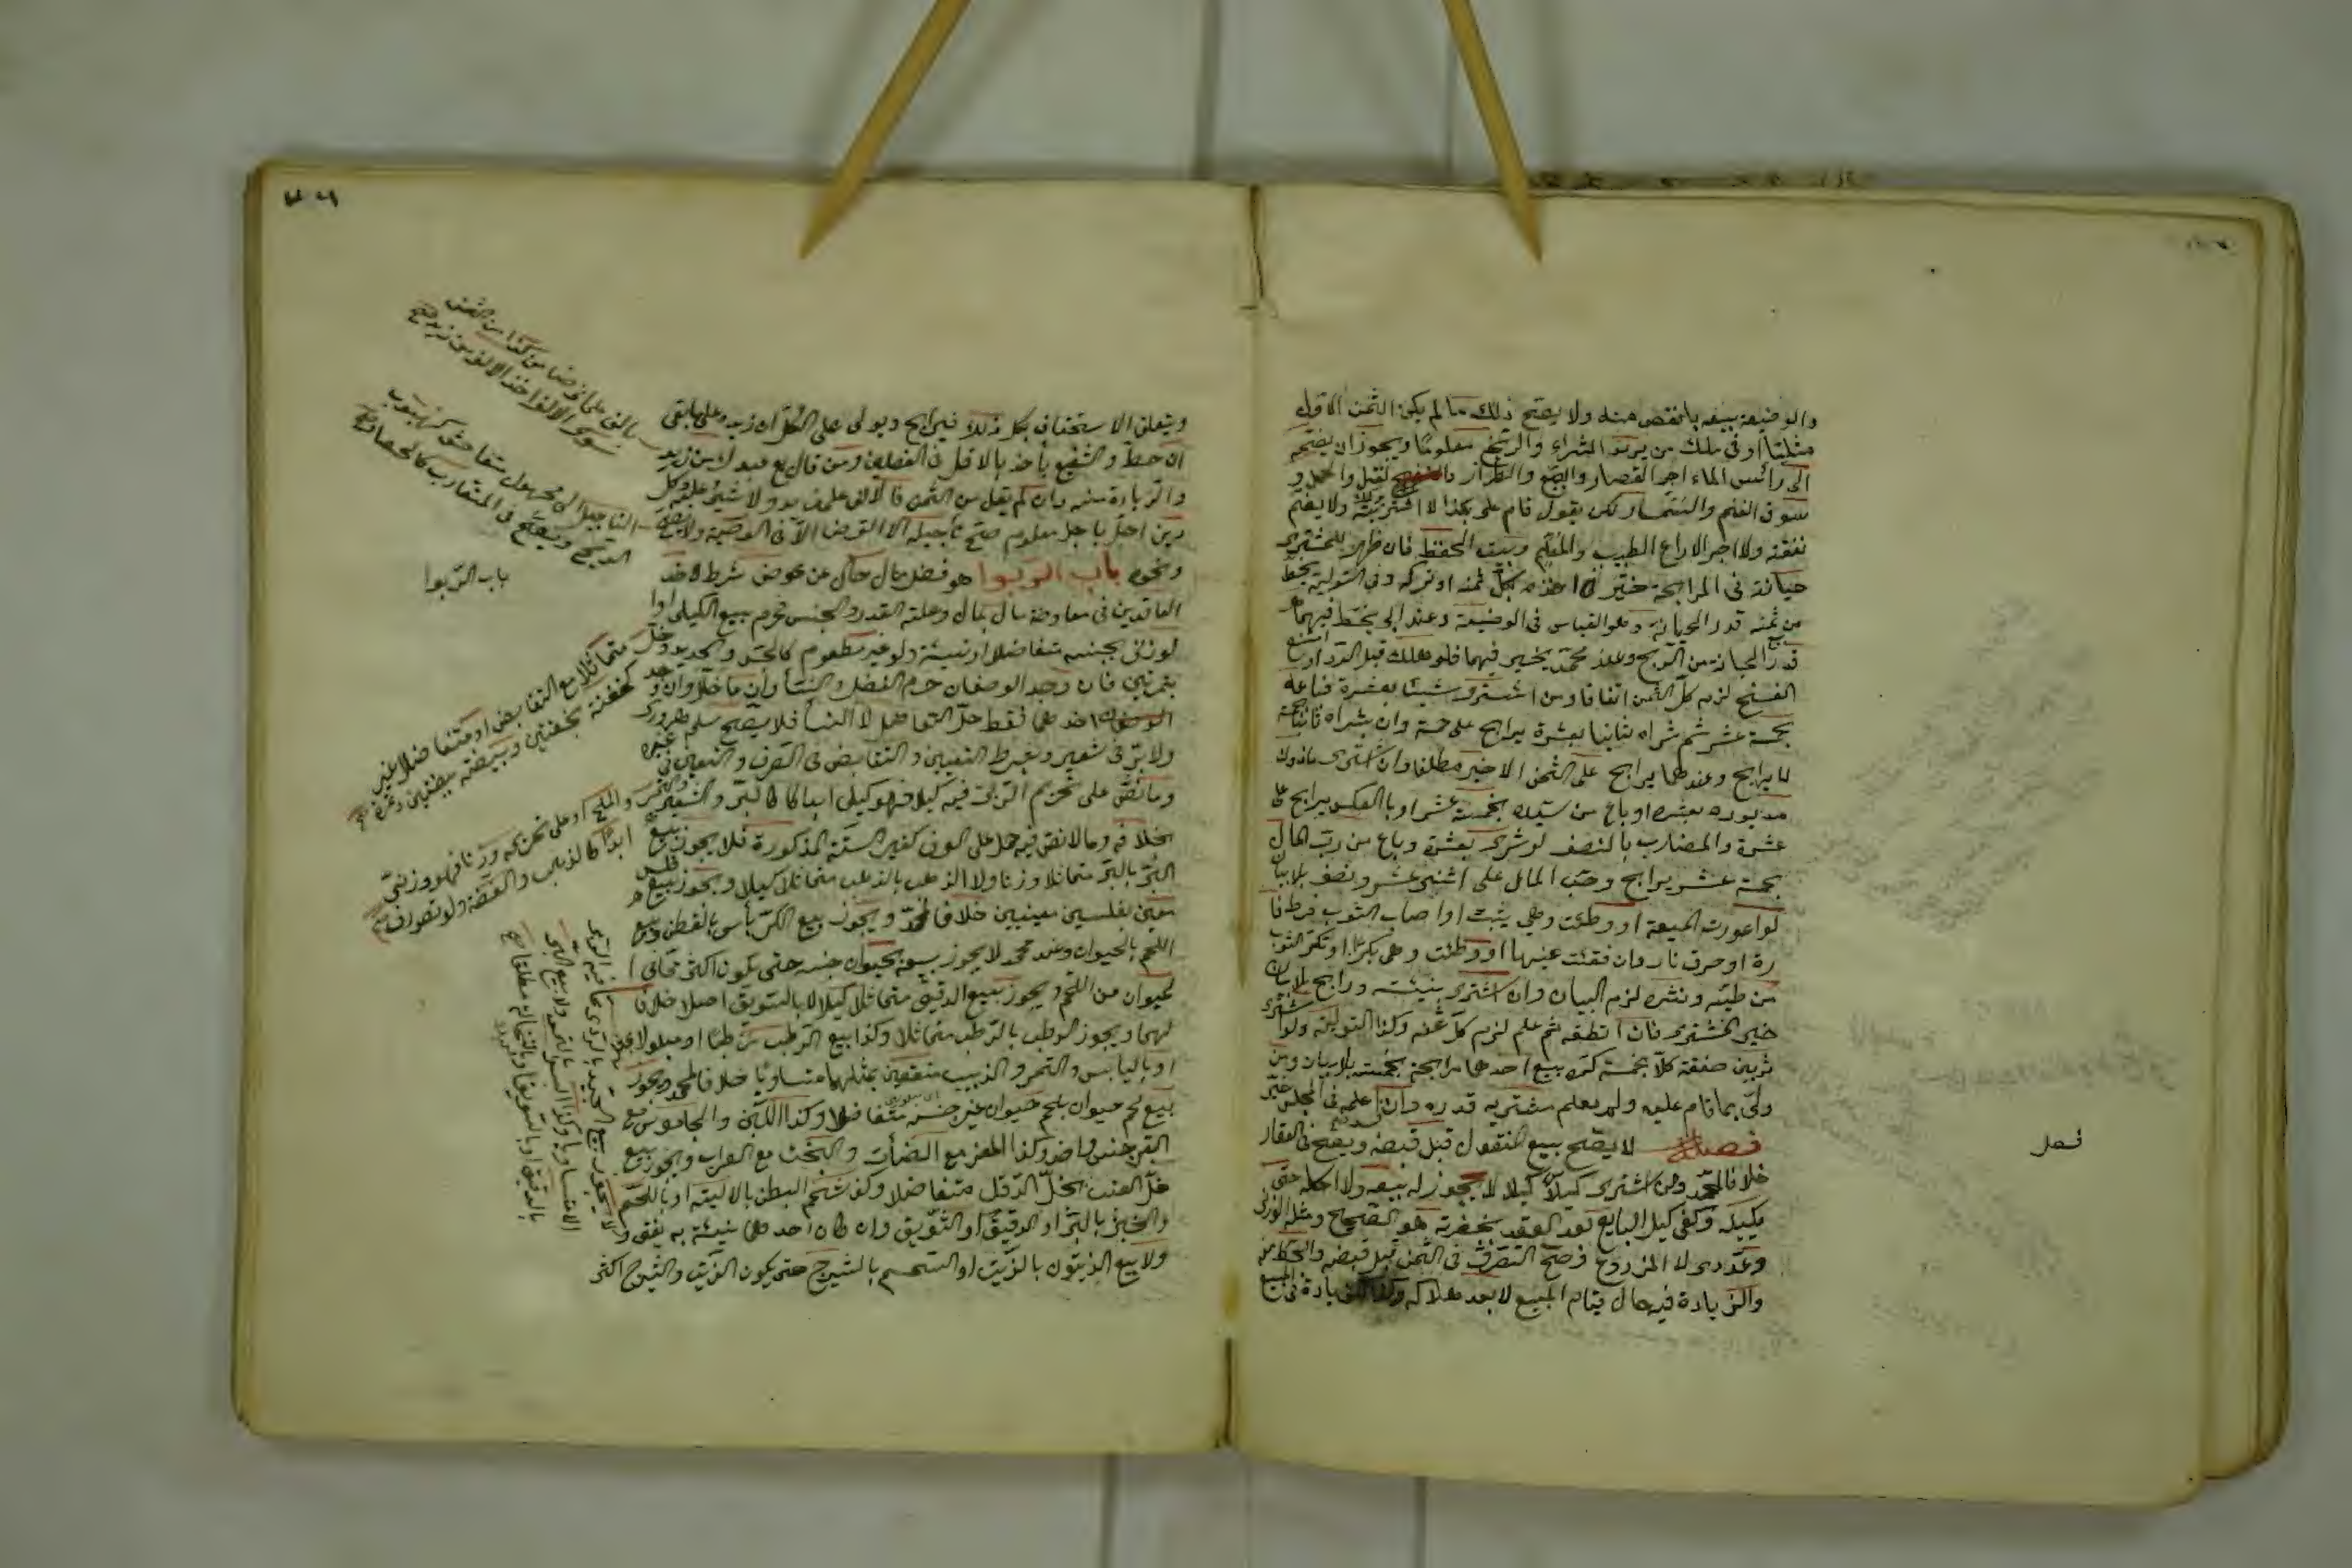 والوضيعة بيعه بانقص منه ولا يصح ذلك ما لم يكن الثمن الاول
مثليا او في ملك من يريد الشراء والربح معلوما ويجوز ان يضم
الى رأس الماء اجر القصار والصبغ والطراز والفتل والحمل و
سوق الغنم والسمسار لكن يقول قام علي بكذا لا اشتريته ولا يضم
نفقته ولا اجر الراع الطبيب والمعلم وبيت الحفظ فان ظهر للمشتري
خيانة في المرابحة خير اخذه بكل ثمنه او تركه وفي التولية يحط
من ثمنه قدر الخيانة وهو القياس في الوضيعة وعند ابي يحط فيهما
قدر الخيانة من الربح وعند محمد يخير فيهما فلو هلك قبل الرد او امتنع
الفسخ لزم كل الثمن اتفاقا ومن اشترى شيئا بعشرة فباعه
بخمسة عشر ثم شراه ثانيا بعشرة يرابح على خمسة وان شراه ثانيا بخمسة
لا يرابح وعندهما يرابح على الثمن الاخير مطلقا وان اشترى مأذون
مديون بعشرة او باع من سيده بخمسة عشر او بالعكس يرابح على
عشرة والمضارب بالنصف لو شرى بعشرة وباع من رب المال
بخمسة عشر يرابح رب المال على اثنى عشر ونصف بلا بيان
لو اعورت المبيعة او وطئت وهي ثيب او اصاب الثوب قرض فا
رة او حرق نار وان فقئت عينها او وطئت وهي بكر او تكسر الثوب
من طيه ونشره لزم البيان وان اشترى بنسيئة ورابح بلا بيان
خير المشتري فان اتلفه ثم علم لزم كل ثمنه وكذا التولية ولو اشترى
ثوبين صفقة كلا بخمسة كره بيع احدهما مرابحة بخمسة بلا بيان ومن
ولى بما قام عليه ولم يعلم مشتريه قدره فسد وان علمه في المجلس خير
فصل لا يصح بيع المنقول قبل قبضه ويصح في العقار
خلافا لمحمد ومن اشترى كيليا كيلا لا يجوز له بيعه ولا اكله حتى
يكيله وكفى كيل البايع بعد العقد بحضرته هو الصحيح ومثله الوزني
وعددي لا المزروع وصح التصرف في الثمن قبل قبضه والحط منه
والزيادة فيه حال قيام المبيع لا بعد هلاكه وكذا الزيادة في المبيع
فصل
ويتعلق الاستحقاق بكل ذلك فيرابح ويولي على الكل ان زيد وعلى ما بقي
ان حط والشفيع يأخذ بالاقل في الفصلين ومن قال بع عبدك من زيد
والزيادة منه وان لم يقل من الثمن فالالف على زيد ولا شيء عليه وكل
دين اجل باجل معلوم صح تأجيله الا القرض الا في الوصية ولا يصح
ونحوه باب الربوا هو فضل مال خال عن عوض شرط لاحد
العاقدين في معاوضة مال بمال وعلته القدر والجنس فحرم بيع الكيلي او ا
لوزني بجنسه متفاضلا او نسيئة ولو غير مطعوم كالجص والحديد وحل
بتمرتين فان وجد الوصفان حرم الفضل والنسأ وان عدما حلا وان وجد
احدهما فقط حل التفاضل لا النسأ فلا يصح سلم هروي
ولا بر في شعير وشرط التعيين والتقابض في الصرف والتعيين في غيره
وما نص على تحريم الربا فيه كيلا فهو كيلي ابدا كالبر والشعير والتمر
بخلافه وما لا نص فيه حمل على العرف كغير الستة المذكورة فلا يجوز بيع
البر بالبر متماثلا وزنا ولا الذهب بالذهب متماثلا كيلا ويجوز بيع فلس
معين بفلسين معينين خلافا لمحمد ويجوز بيع الكرباس بالقطن وبيع
اللحم بالحيوان وعند محمد لا يجوز بيعه بحيوان جنسه حتى يكون اكثر مما في ا
لحيوان من اللحم ويجوز بيع الدقيق متماثلا كيلا لا بالسويق اصلا خلافا
لهما ويجوز الرطب بالرطب متماثلا وكذا بيع الرطب رطبا او مبلولا بمثله
او باليابس والتمر والزبيب منقعين بمثلهما متساويا خلافا لمحمد ويجوز
بيع لحم حيوان بلحم حيوان غير جنسه متفاضلا وكذا اللبن والجاموس مع
البقر جنس واحد وكذا المعز مع الضأن والبخت مع العراب ويجوز بيع
خل العنب بخل الدقل متفاضلا وكذا شحم البطن بالالية او باللحم
والخبز بالبر او الدقيق او السويق وان كان احدهما نسيئة به يفتى و
ولا بيع الزيتون بالزيت او السمسم بالشيرج حتى يكون الزيت والشيرج اكثر
بالف على اني ضامن كذا من الثمن
سوى الالف اخذ الالف من زيد صح
التأجيل الى مجهول متفاحش كهبوب
الريح ويصح في المتقارب كالحصاد صح
باب الربوا
متماثلا مع التقابض او متفاضلا غير
كحفنة بحفنتين وبيضة ببيضتين وتمرة صح
والملح او على تحريمه وزنا فهو وزني
ابدا كالذهب والفضة ولو تعورف صح
لا يجوز بيع الجيد بالردي مما فيه الربوا
الا متساويا وكذا البسر بالتمر ولا بيع البر
بالدقيق او بالسويق او بالنخالة مطلقا صح